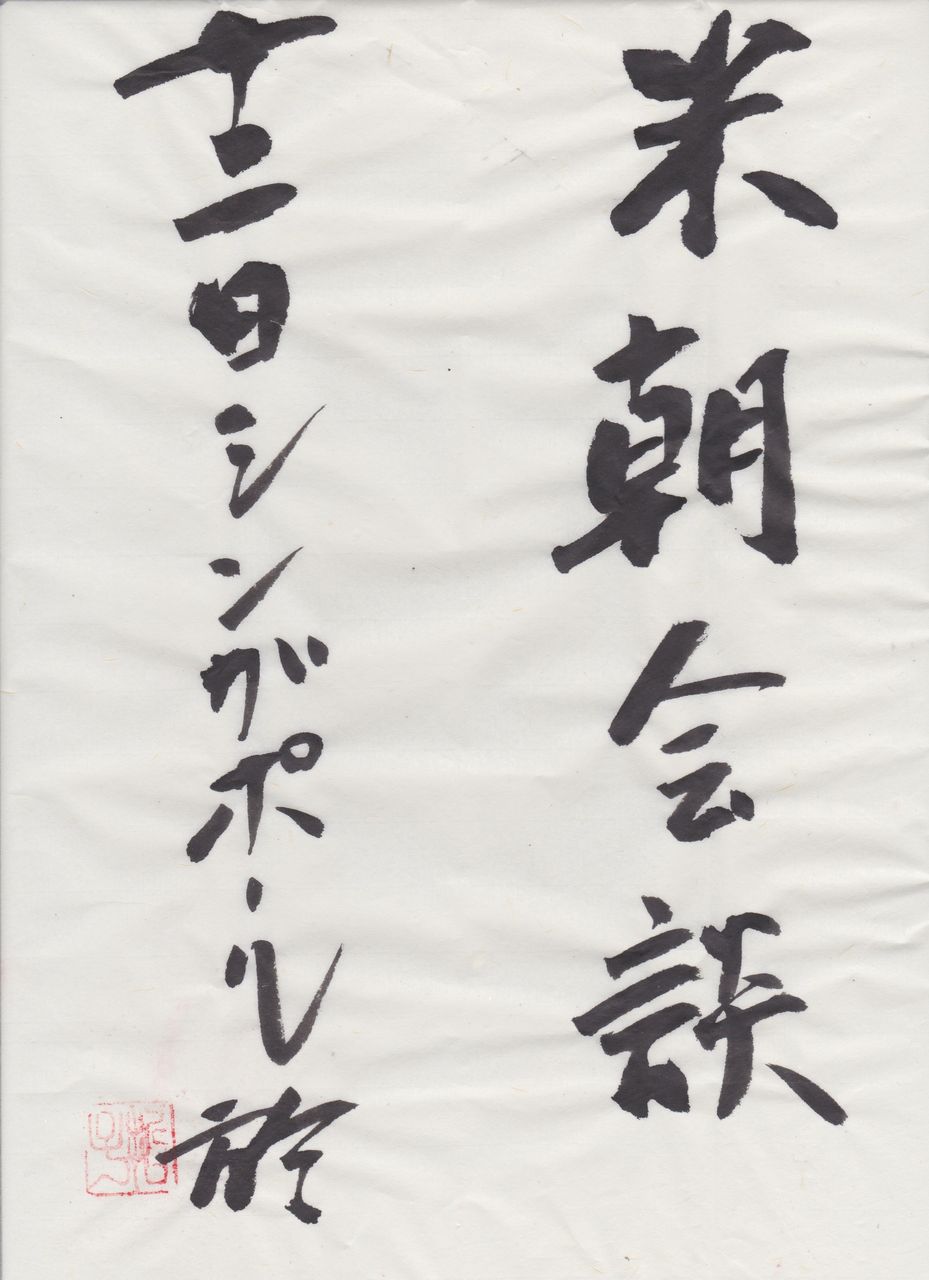 米朝会談
十二日シンガポール於